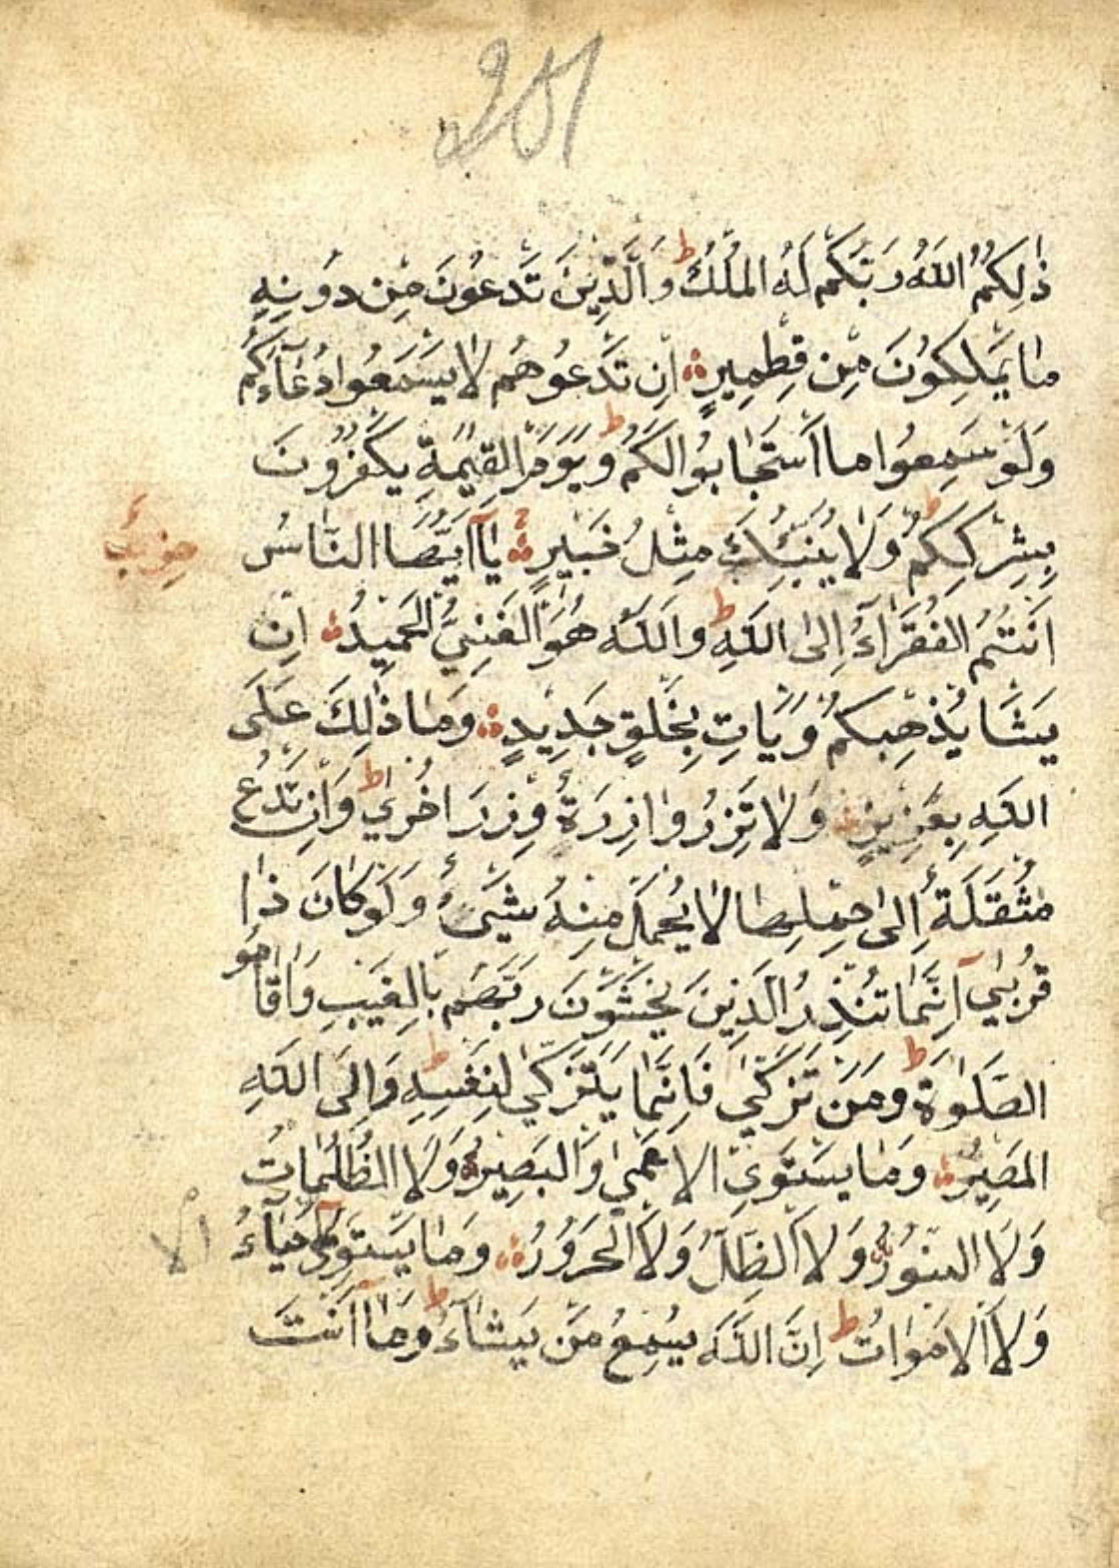 251
ذٰلِكُمُ اللّٰهُ رَبُّكُم لَهُ المُلْكُ ط وَالَّذِينَ تَدْعُونَ مِن دُونِهِ
مٰا يَمْلِكُونَ مِن قِطْمِيرٍ اِن تَدْعُوهُم لٰا يَسْمَعُوا دُعٰآءَكُم
وَلَوْ سَمِعُوا مٰا اسْتَجٰابُوا لَكُم ط وَيَوْمَ القِيٰمَةِ يَكْفُرُونَ
بِشِرْكِكُم ط وَلٰا يُنَبِّئُكَ مِثْلُ خَبِيرٍ يٰآ اَيُّهَا النّٰاسُ
حِزْب
اَنْتُمُ الفُقَرٰآءُ اِلَى اللّٰهِ ط وَاللّٰهُ هُوَ الغَنِيُّ الحَمِيدُ اِن
يَشَا يُذْهِبكُم وَيَاتِ بِخَلقٍ جَدِيدٍ وَمٰا ذٰلِكَ عَلَى
اللّٰهِ بِعَزِيزٍ وَلٰا تَزِرُ وٰازِرَةٌ وِزرَ اخْرىٰ ط وَاِن تَدْعُ
مُثْقَلَةٌ اِلىٰ حِمْلِهٰا لٰا يُحْمَل مِنهُ شَيْءٌ وَلَوْ كٰانَ ذٰا
قُربىٰ اِنَّمٰا تُنْذِرُ الَّذِينَ يَخْشَوْنَ رَبَّهُم بِالغَيْبِ وَاَقٰامُو
الصَّلٰوةَ ط وَمَن تَزَكّىٰ فَاِنَّمٰا يَتَزَكّىٰ لِنَفسِهِ ط وَاِلَى اللّٰهِ
المَصِيرُ وَمٰا يَسْتَوِي الاَعْمىٰ وَالبَصِيرُ وَلَا الظُّلُمٰاتُ
وَلَا النُّورُ وَلَا الظِّلُّ وَلَا الحَرُورُ وَمٰا يَسْتَوِي حيٰآءُ
الا
وَلَا الاَموٰاتُ ط اِنَّ اللّٰهَ يُسْمِعُ مَن يَشٰآءُ ط وَمٰا اَنْتَ